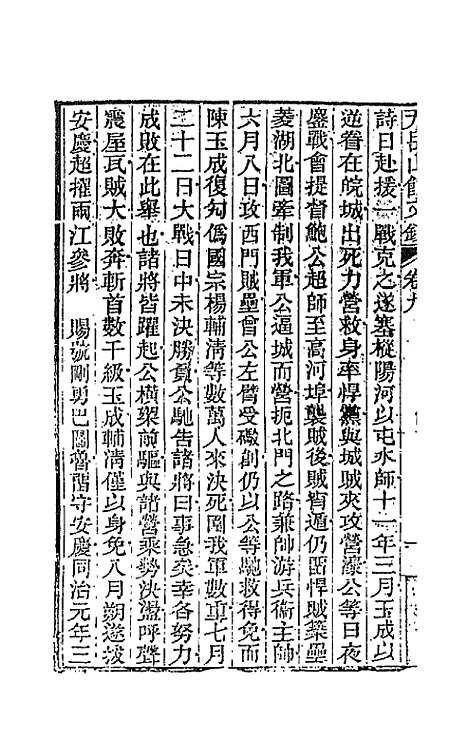 天岳山館文鈔 卷九
詩曰赴援一戰克之遂塞樅陽河以屯水師十一年三月玉成以
逆眷在皖城出死力營救身率悍黨與城賊夾攻營濠公等日夜
鏖戰會提督鮑公超師至高河埠襲賊後賊宵遁仍留悍賊築壘
菱湖北圖牽制我軍公逼城而營扼北門之路兼帥游兵衞主帥
六月八日攻西門賊壘曾公左臂受礮創仍以公等馳救得免而
陳玉成復勾僞國宗楊輔清等數萬人來決死圍我軍數重七月
二十二日大戰日中未決勝負公馳告諸將曰事急矣幸各努力
成敗在此舉也諸將皆躍起公橫槊前驅與諸營乘勢決盪呼聲
震屋瓦賊大敗奔斬首數千級玉成輔清僅以身免八月朔遂拔
安慶超擢兩江參將 賜號剛勇巴圖魯留守安慶同治元年三